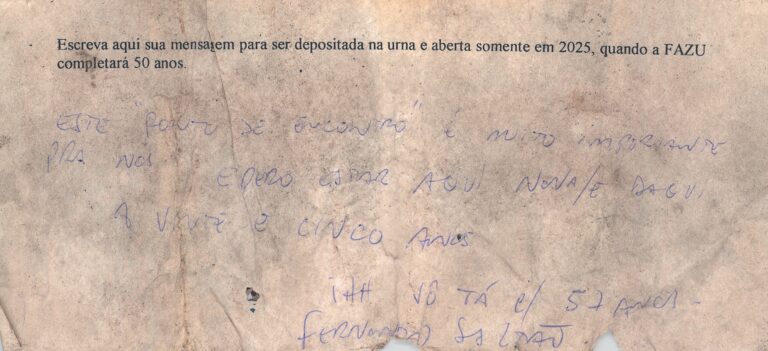 Escreva aqui sua mensagem para ser depositada na urna e aberta somente em 2025, quando a FAZU
completará 50 anos.
ESTE "PONTO DE ENCONTRO" É MUITO IMPORTANTE
PRA NÓS. ESPERO ESTAR AQUI NOVA/E DAQUI
A VINTE E CINCO ANOS
SÓ TÁ C/ 57 ANOS -
FERNANDO